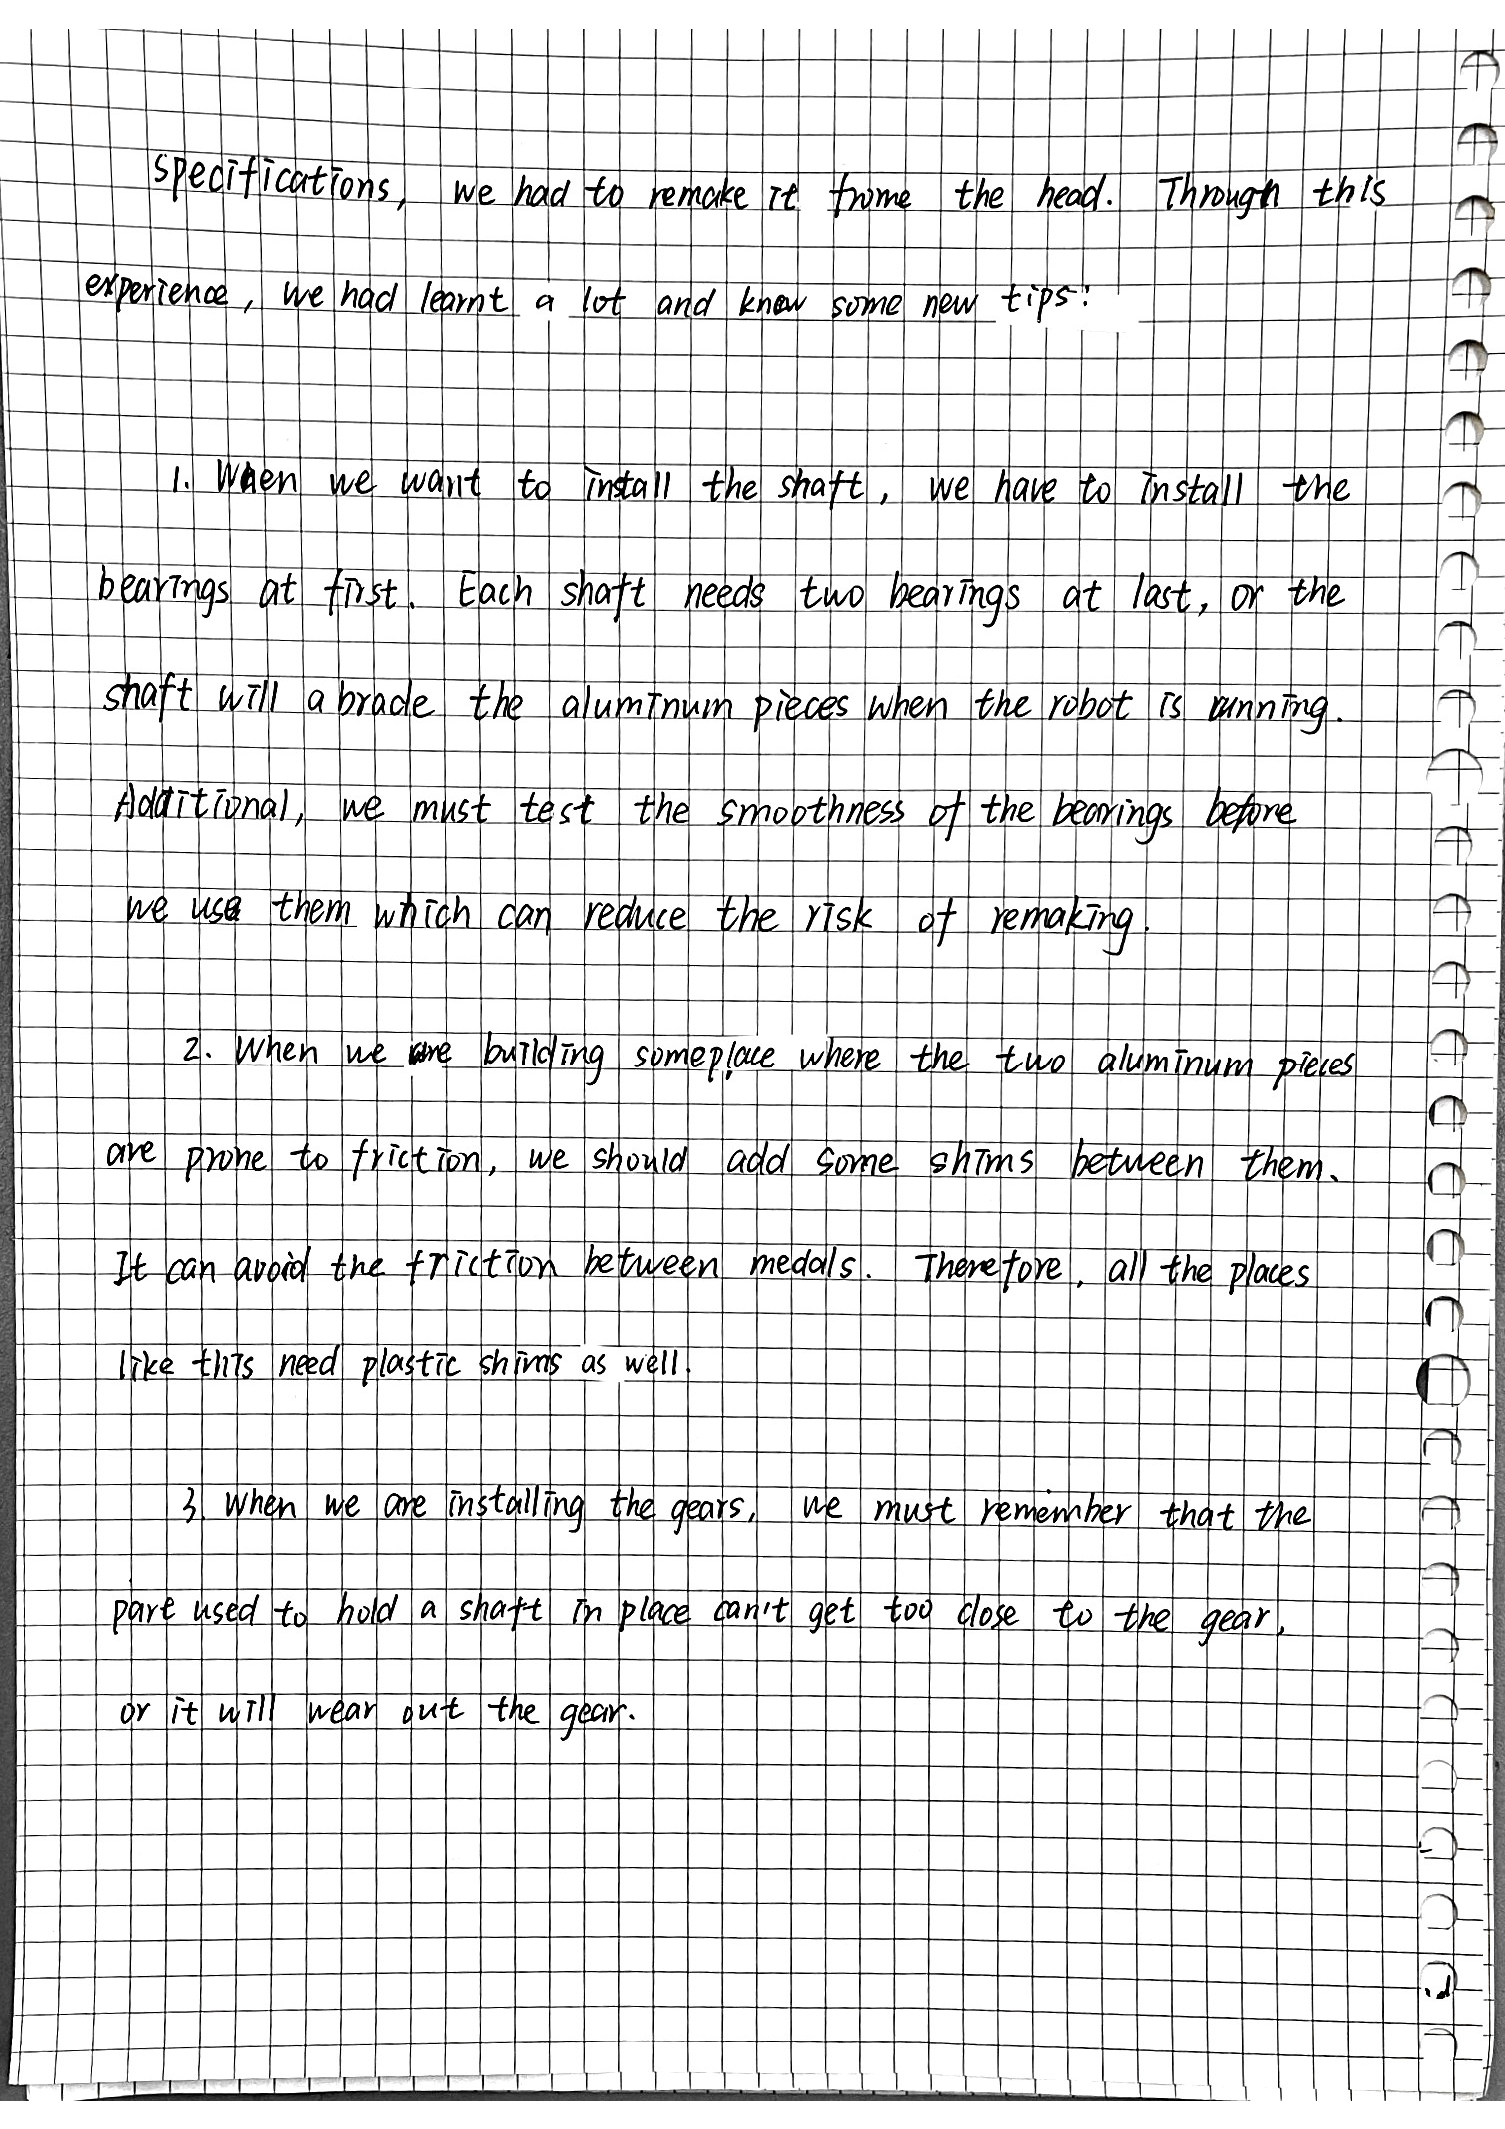 specifications, we had to remake it frome the head. Through this
experience, we had learnt a lot and know some new tips:
1. When we want to install the shaft, we have to install the
bearings at first. Each shaft needs two bearings at last, or the
shaft will abrade the aluminum pieces when the robot is running.
Additional, we must test the smoothness of the bearings before
we use them which can reduce the risk of remaking.
2. When we are building someplace where the two aluminum pieces
are prone to friction, we should add some shims between them.
It can avoid the friction between medals. Therefore, all the places
like this need plastic shims as well.
3. When we are installing the gears, we must remember that the
part used to hold a shaft in place can't get too close to the gear,
or it will wear out the gear.